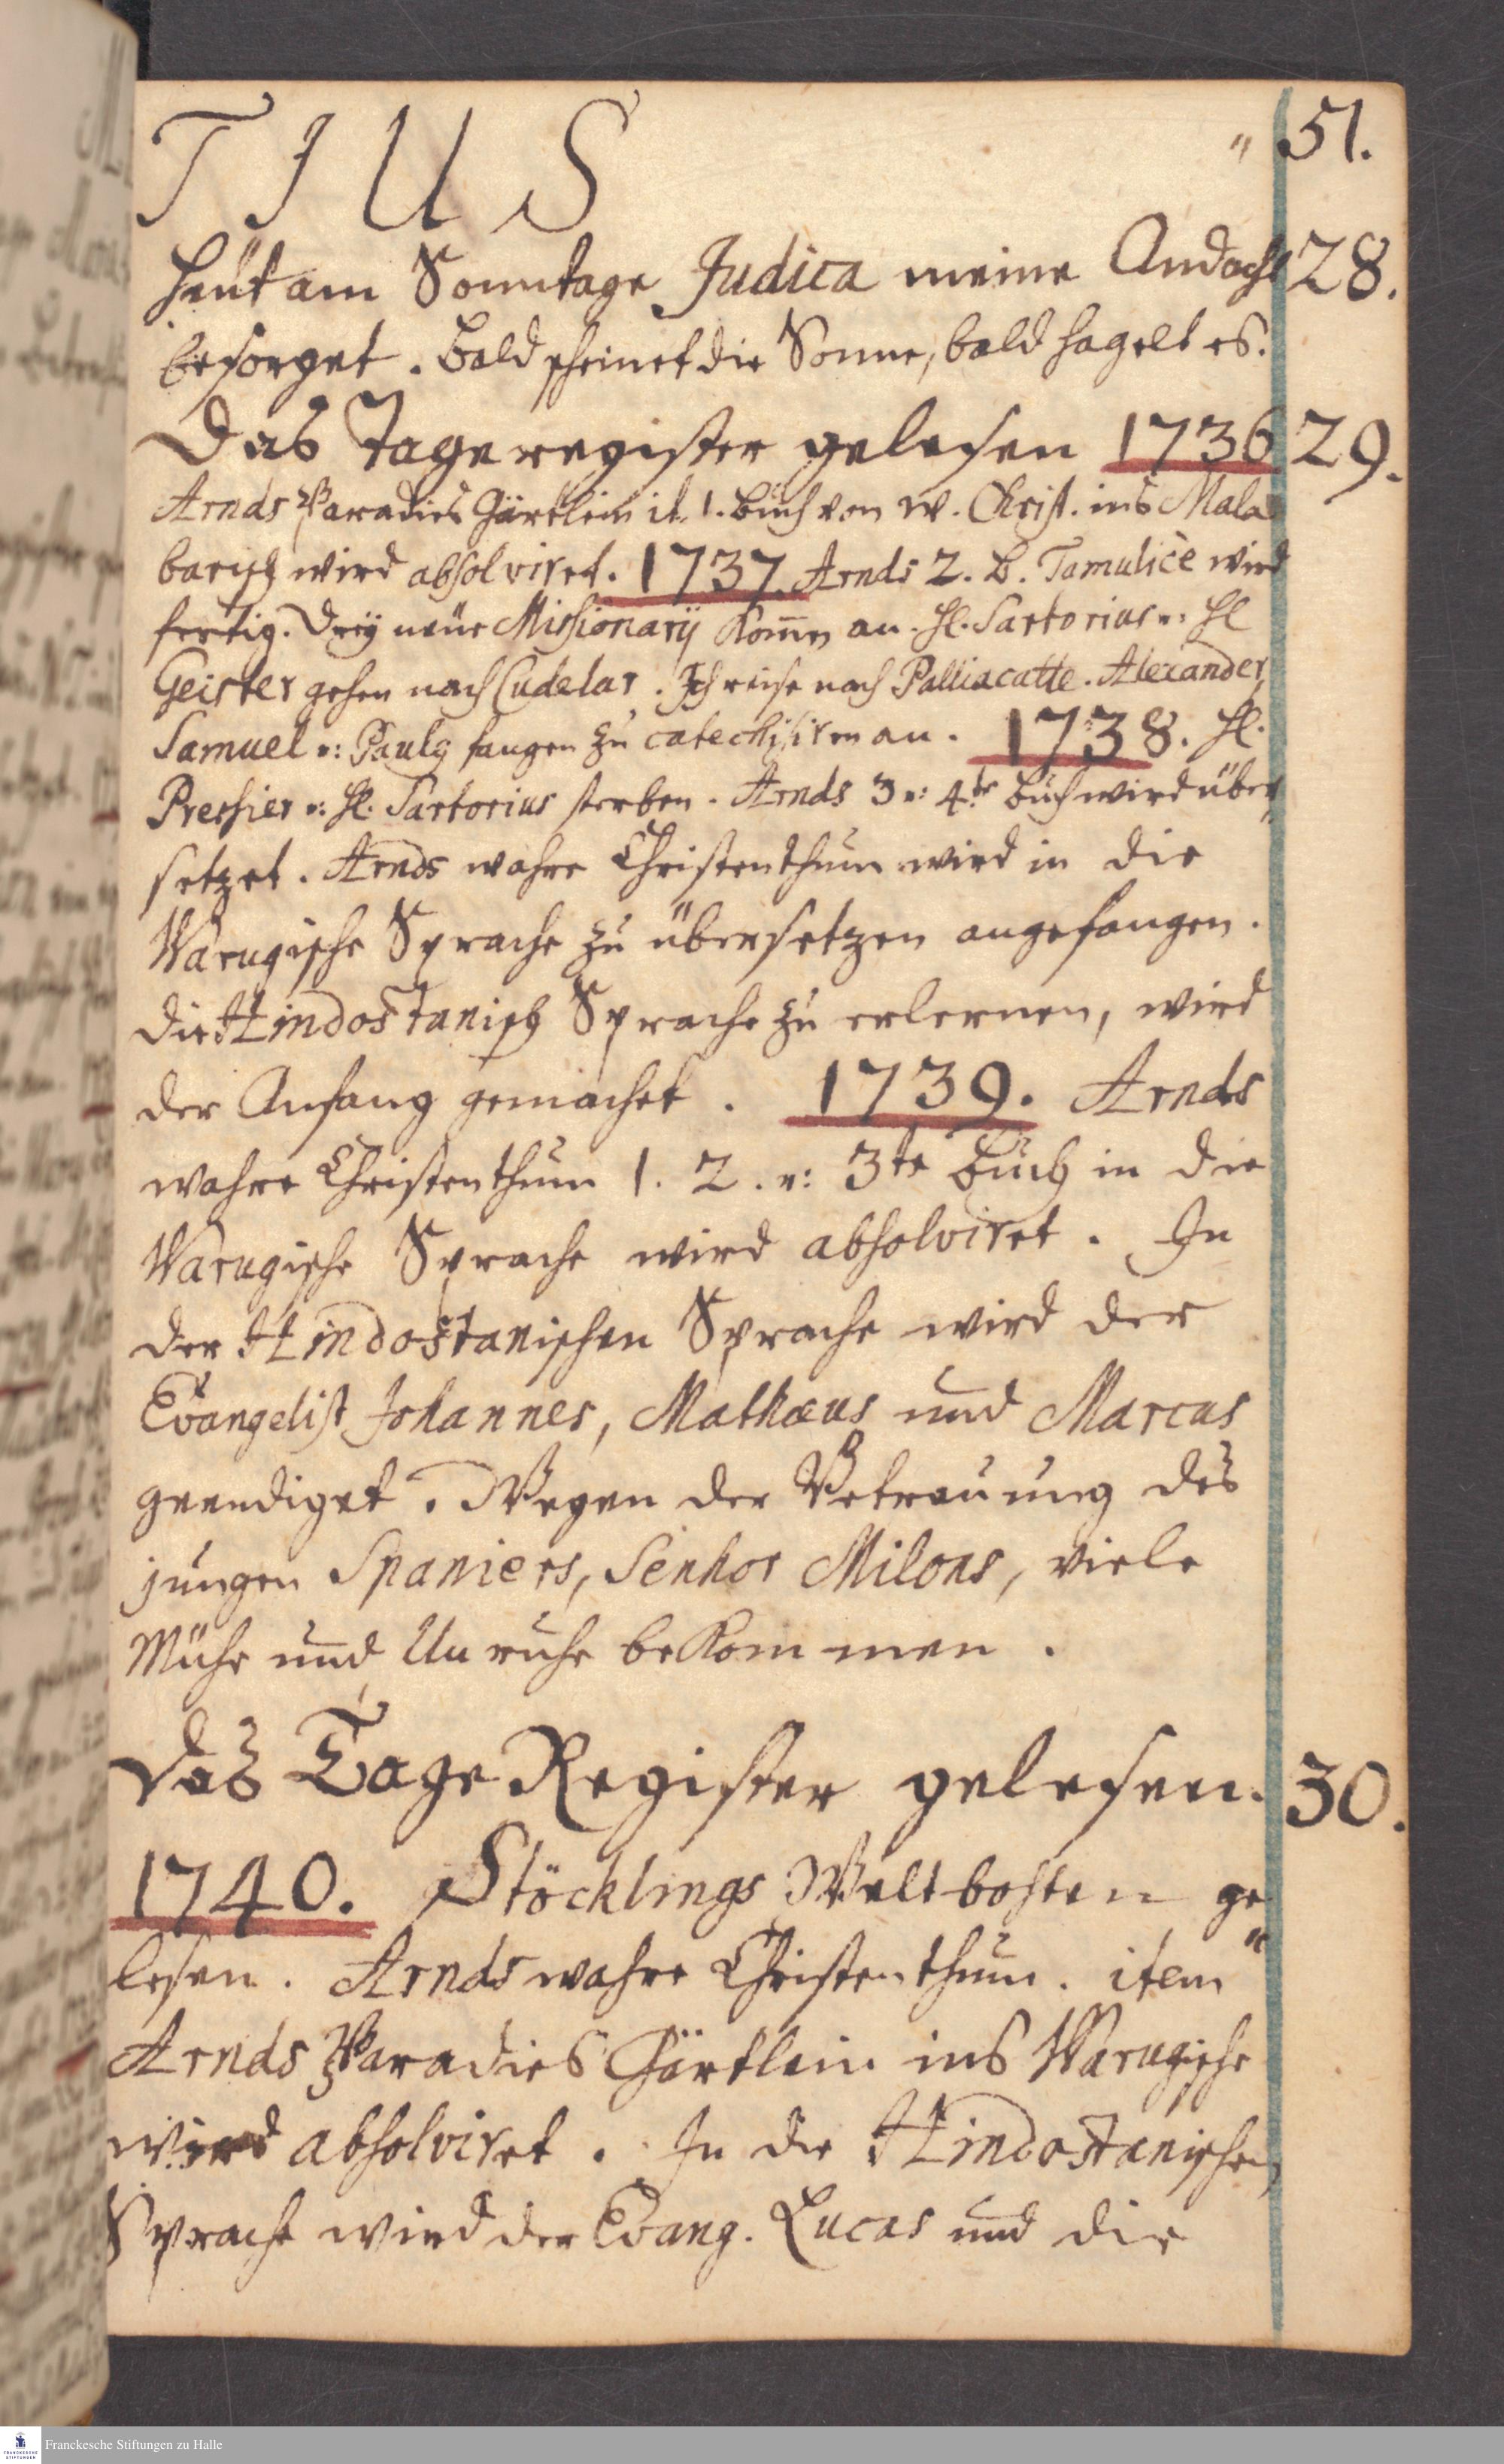 TIUS " 51.
Heut am Sonntage Judica meine Andacht 28.
besorget. Bald scheinet die Sonne, bald hagelt es.
Das Tageregister gelesen 1736 29.
Arnds Paradies Gärtlein it. 1. Buch von W. Christ. ins Mala
barisch wird absolviret. 1737. Arnds 2. B. Tamulice wird
fertig. Drey neue Missionarij kom̄en an. H. Sartorius u: H
Geister gehen nach Cudelur. Ich reise nach Palliacatte. Alexander,
Samuel u: Pauly fangen zu catechisiren an. 1738. H.
Pressier u: H. Sartorius sterben. Arnds 3 u: 4te Buch wird über
setzet. Arnds wahre Christenthum wird in die
Warugische Sprache zu übersetzen angefangen.
Die Hindostanisch Sprache zu erlernen, wird
der Anfang gemachet. 1739. Arnds
wahre Christenthum 1. 2. u: 3te Buch in die
Warugische Sprache wird absolviret. In
der Hindostanischen Sprache wird der
Evangelist Johannes, Mathæus und Marcus
geendiget. Wegen der Betrauung des
jungen Spaniers, Senhor Milons, viele
Mühe und Unruhe bekommen.
Das Tage Register gelesen. 30.
1740. Stöcklings Weltbothen ge
lesen. Arnds wahre Christenthum. item
Arnds Paradies Gärtlein ins Warugische
wird absolviret. In die Hindostanischen
Sprache wird der Evang. Lucas und die
Franckesche Stiftungen zu Halle